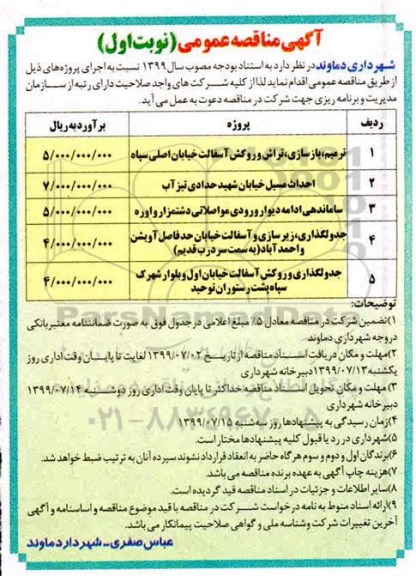 آگهی مناقصه عمومی (نوبت اول)
شهرداری دماوند در نظر دارد به استناد بودجه مصوب سال ۱۳۹۹ نسبت به اجرای پروژه‌های ذیل
از طریق مناقصه عمومی اقدام نماید لذا از کلیه شرکت های واجد صلاحیت دارای رتبه از سازمان
مدیریت و برنامه ریزی جهت شرکت در مناقصه دعوت به عمل می آید.
ردیف پروژه برآورد به ریال
۱ ترمیم، بازسازی، تراش و روکش آسفالت خیابان اصلی سپاه ۵/۰۰۰/۰۰۰/۰۰۰
۲ احداث مسیل خیابان شهید حدادی تیزآب ۷/۰۰۰/۰۰۰/۰۰۰
۳ ساماندهی ادامه دیوار ورودی مواصلاتی دشتمزار و اوره ۵/۰۰۰/۰۰۰/۰۰۰
۴ جدولگذاری، زیرسازی و آسفالت خیابان حدفاصل آویشن
و احمدآباد (به سمت سردرب قدیم) ۴/۰۰۰/۰۰۰/۰۰۰
۵ جدولگذاری و روکش آسفالت خیابان اول و بلوار شهرک
سپاه پشت رستوران توحید ۴/۰۰۰/۰۰۰/۰۰۰
توضیحات:
۱)تضمین شرکت در مناقصه معادل ۵% مبلغ اعلامی در جدول فوق به صورت ضمانتنامه معتبر بانکی
در وجه شهرداری دماوند
۲)مهلت و مکان دریافت اسناد مناقصه از تاریخ ۱۳۹۹/۰۷/۰۲ لغایت تا پایان وقت اداری روز
یکشنبه ۱۳۹۹/۰۷/۱۳ دبیرخانه شهرداری
۳) مهلت و مکان تحویل اسناد مناقصه حداکثر تا پایان وقت اداری روز دوشنبه ۱۳۹۹/۰۷/۱۴
دبیرخانه شهرداری
۴)زمان رسیدگی به پیشنهادها روز سه شنبه ۱۳۹۹/۰۷/۱۵
۵)شهرداری در رد یا قبول کلیه پیشنهادها مختار است.
۶)برندگان اول و دوم و سوم هرگاه حاضر به انعقاد قرارداد نشوند سپرده آنان به ترتیب ضبط خواهد شد.
۷)هزینه چاپ آگهی به عهده برنده مناقصه می باشد.
۸)سایر اطلاعات و جزئیات در اسناد مناقصه قید گردیده است.
۹)ارائه اسناد منوط به نامه درخواست شرکت در مناقصه با قید موضوع مناقصه و اساسنامه و آگهی
آخرین تغییرات شرکت و شناسه ملی و گواهی صلاحیت پیمانکار می باشد.
عباس صفری - شهردار دماوند
ParsNamadData
۰۲۱-۸۸۳۴۹۶۷۰-۵